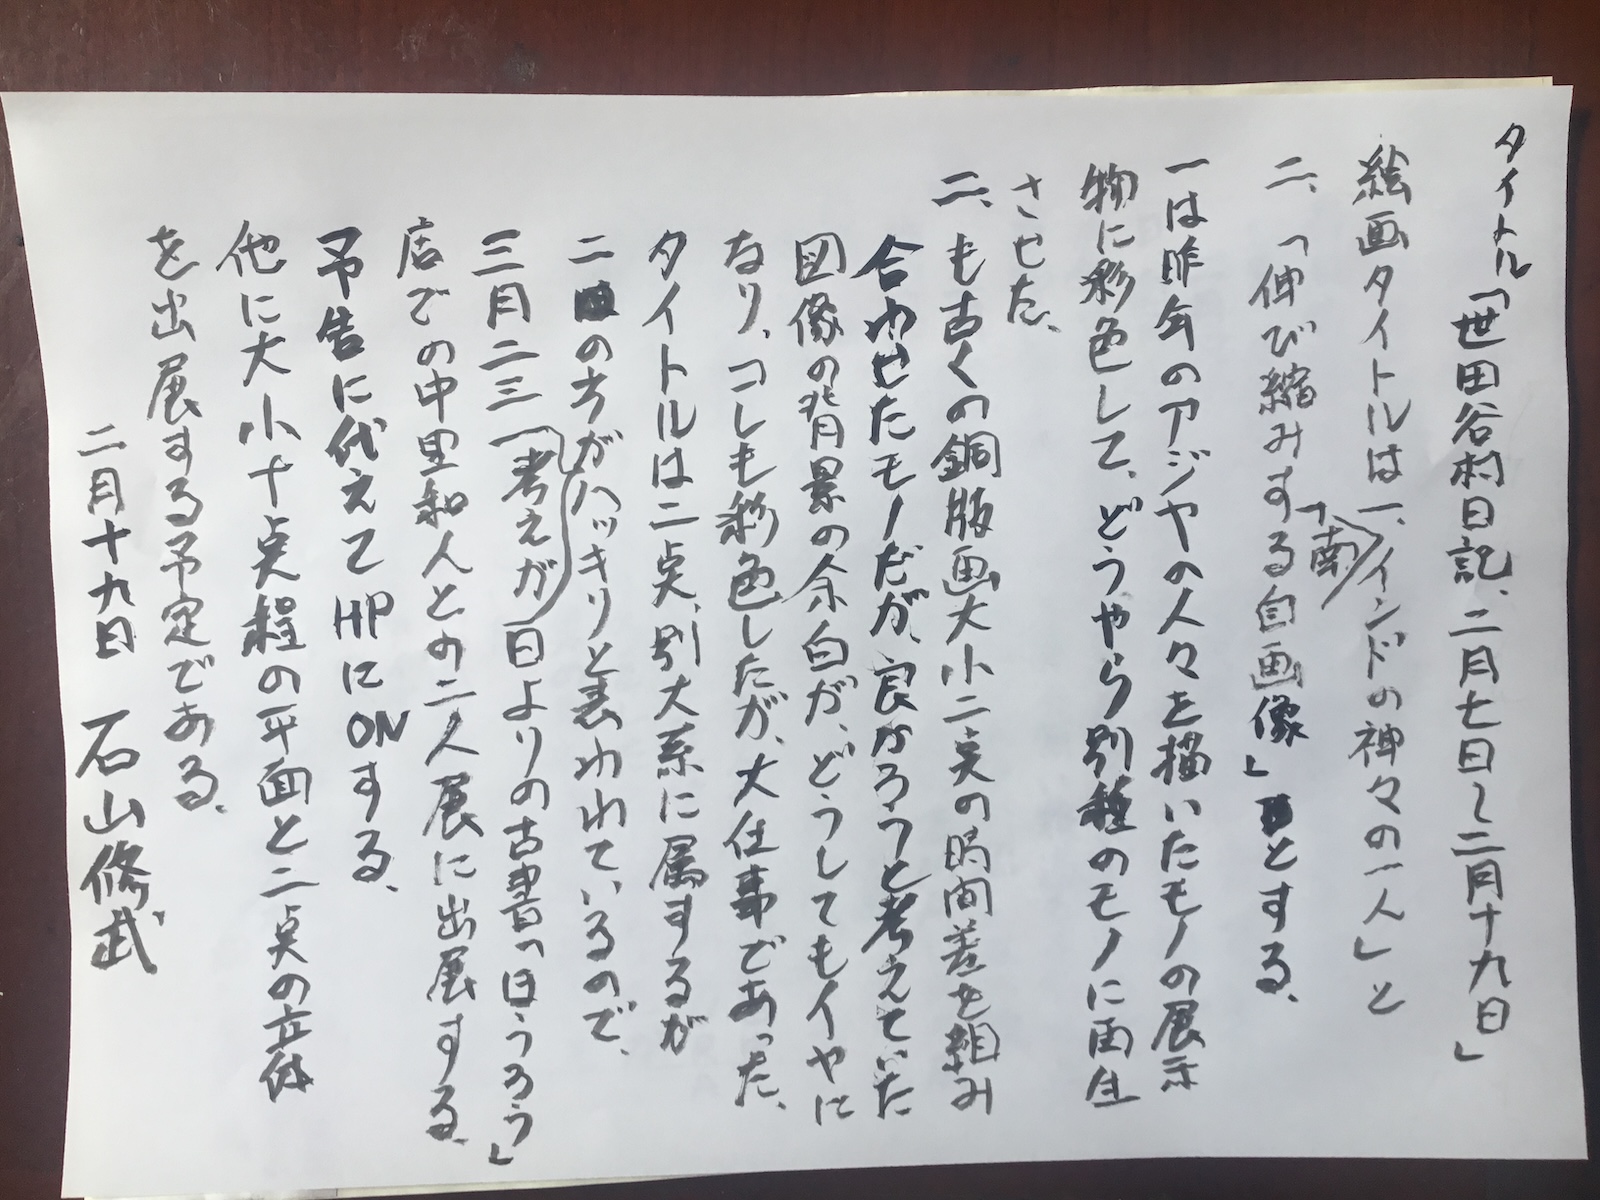 タイトル「世田谷村日記、二月七日〜二月十九日」
絵画タイトルは一、「南インドの神々の一人」と
二、「伸び縮みする自画像」とする、
一は昨年のアジヤの人々を描いたモノの展示
物に彩色して、どうやら別種のモノに再生
させた、
二、も古くの銅版画大小二点の時間差を組み
合わせたモノだが、良かろうと考えていた
図像の背景の余白が、どうしてもイヤに
なり、コレも彩色したが、大仕事であった、
タイトルは二点、別大系に属するが
二の方が考えがハッキリと表われているので、
三月二三日よりの古書「ほうろう」
店での中里和人との二人展に出展する、
予告に代えてHPにONする、
他に大小十点程の平面と二点の立体
を出展する予定である、
二月十九日 石山修武